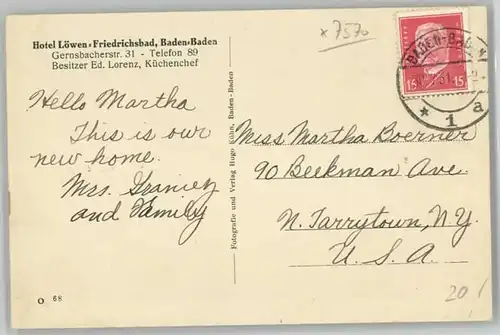 Hotel Löwen-Friedrichsbad, Baden-Baden
Gernsbacherstr. 31 - Telefon 89
Besitzer Ed. Lorenz, Küchenchef
Hello Martha
This is our
new home.
Mrs.
and Family
O 68
Fotografie und Verlag Hugo Kühn, Baden-Baden
x7570
15 15
BADEN-BADEN
* 1 a
Miss Martha Boerner
90 Beekman Ave.
N. Tarrytown, N.Y.
U. S. A.
20